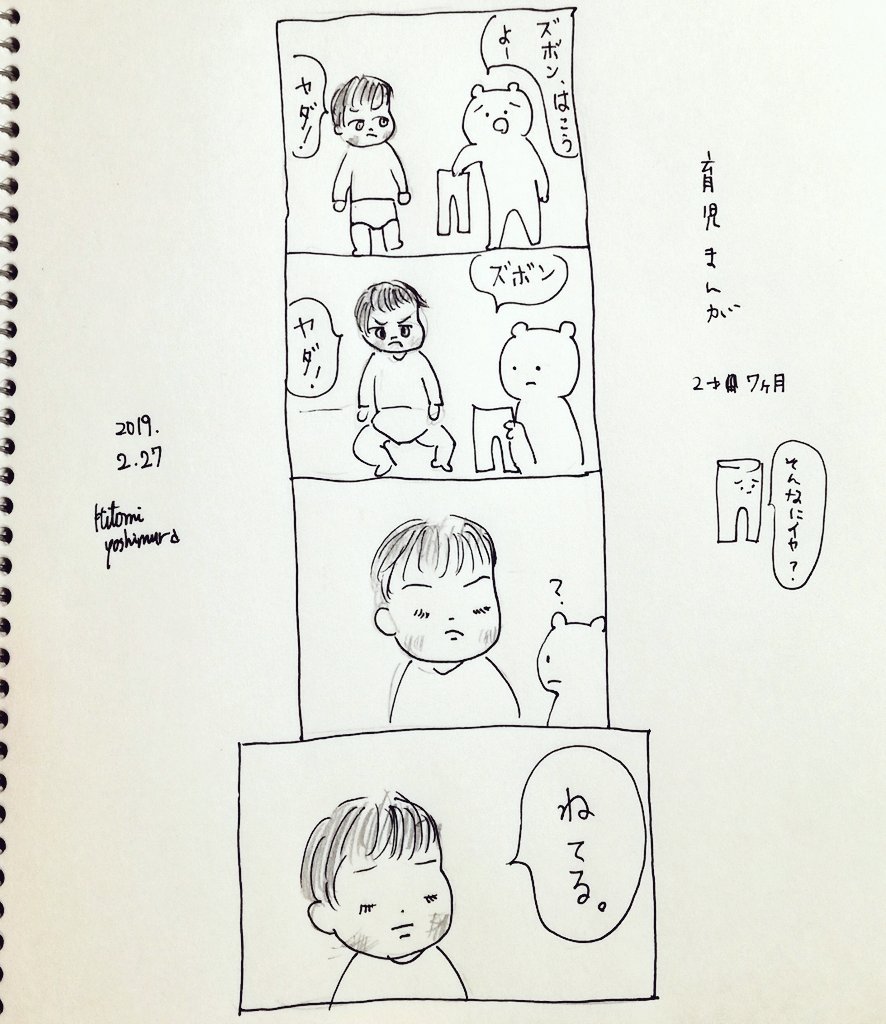 育児まんが
2才 7ヶ月
ズボン、はこう
よー
ヤダ!
ズボン
ヤダ!
?
ねてる。
そんなにイヤ?
2019.
2.27
Hitomi
yoshimura